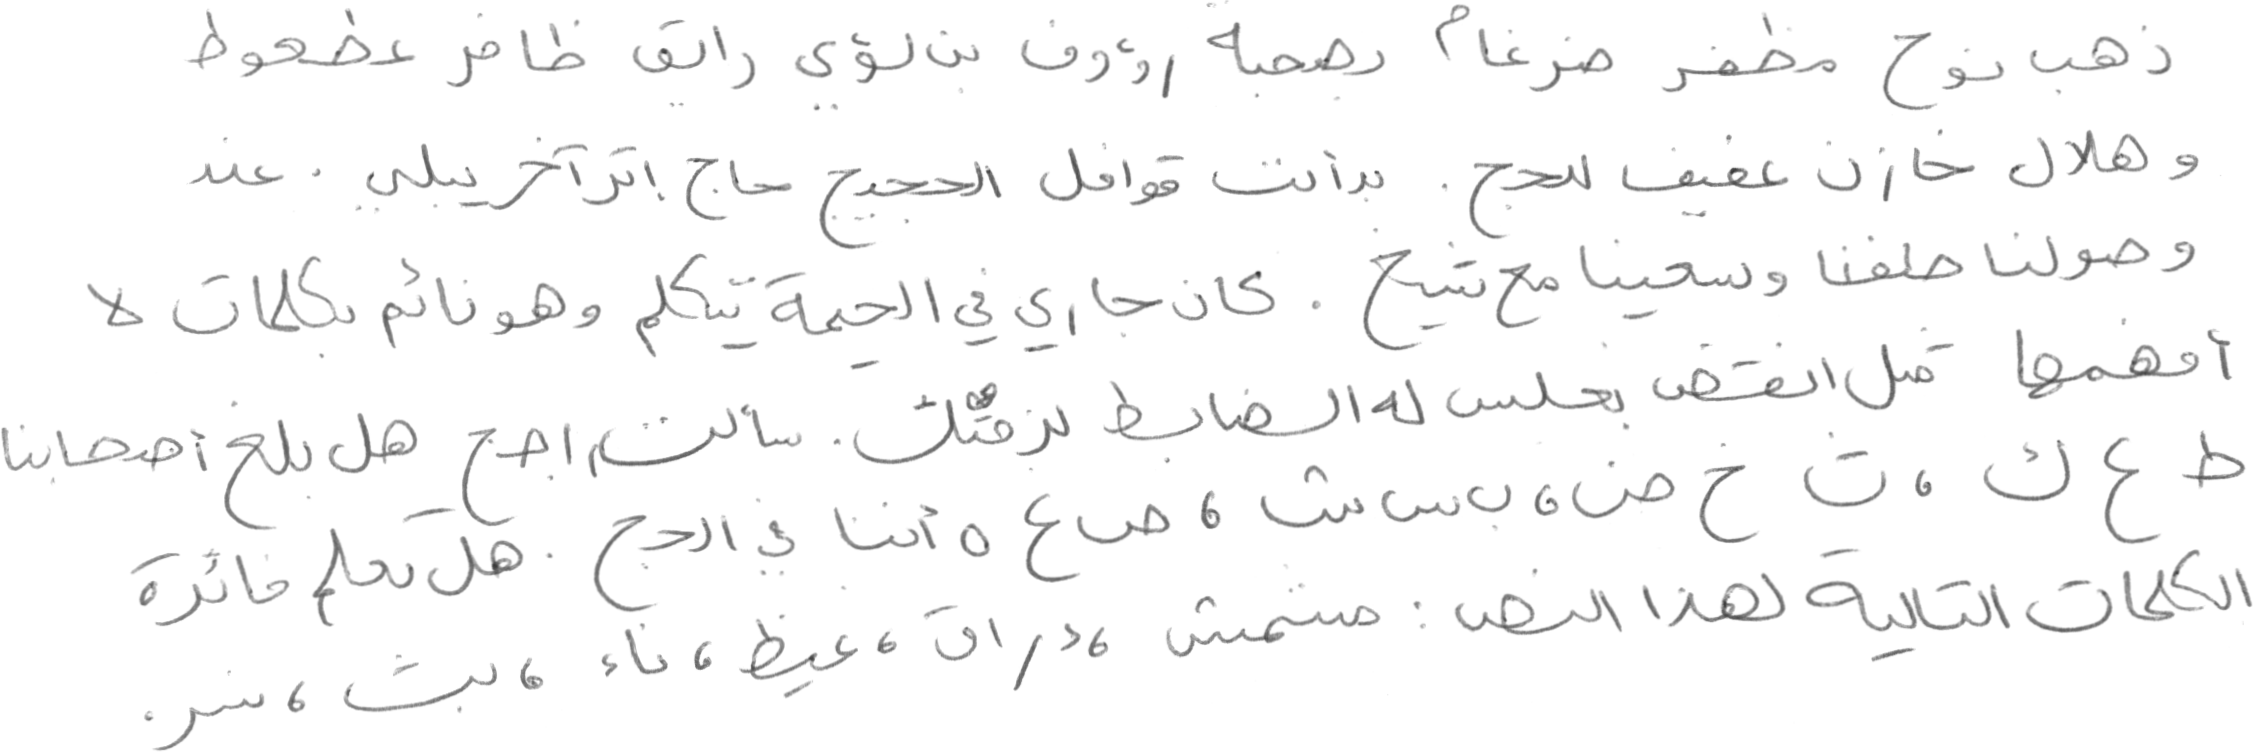 ذهب نوح مظفر ضرغام بصحبة رؤوف بن لؤي رايق ظافر عظعوط
وهلال خازن عفيف للحج. بدأت قوافل الحجيج حاج إثر آخر يبلي. عند
وصولنا حلفنا وسعينا مع شيخ. كان جاري في الخيمة يتكلم وهو نائم بكلمات لا
أفهمها قبل انقض بجلس له الضابط سألت راجح هل بلغ أصحابنا
ط ع ك، ث خ ض، ب س ش، ص ع ه أننا في الحج. هل تعلم فائدة
الكلمات التالية لهذا النص: مشمش، دراق، غيظ، ناء، بث، سر.